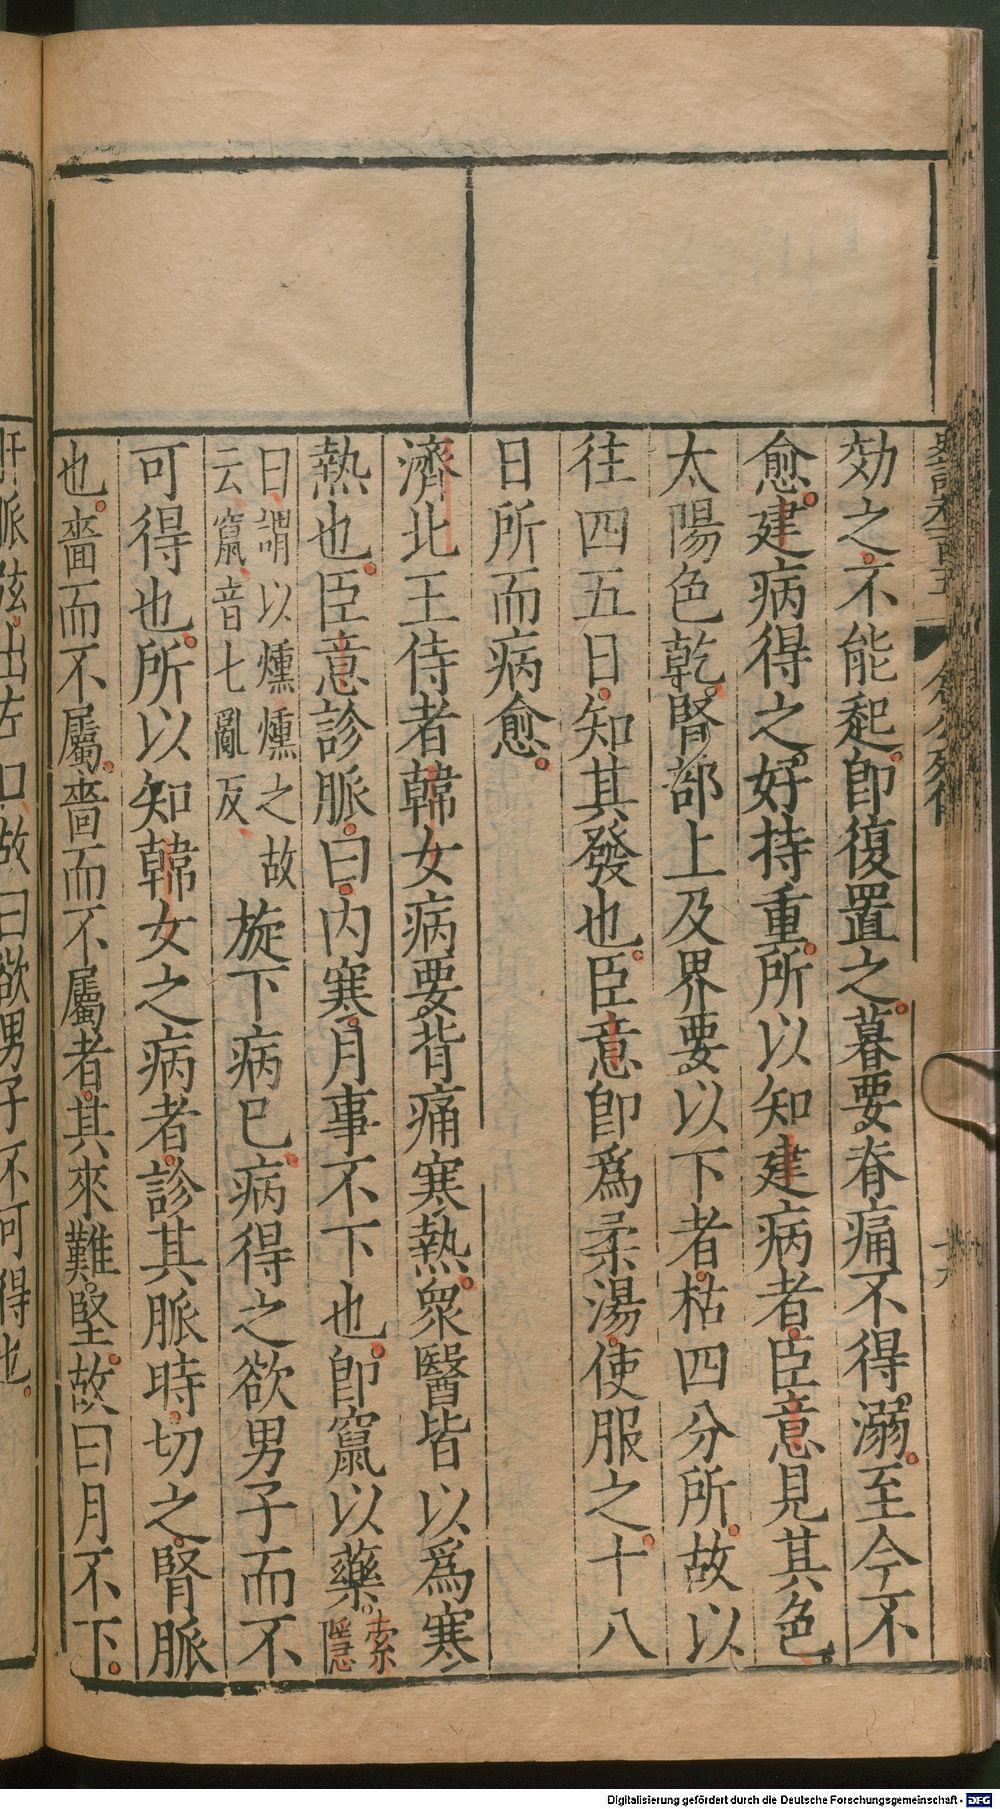 効之不能起即復置之暮要脊痛不得溺至今不
愈建病得之好持重所以知建病者臣意見其色
太陽色乾腎部上及界要以下者枯四分所故以
往四五日知其發也臣意即爲柔湯使服之十八
日所而病愈
濟北王侍者韓女病要背痛寒熱衆醫皆以爲寒
熱也臣意診脈曰内寒月事不下也即竄以藥索隱
曰謂以燻燻之故
云竄音七亂反
旋下病已病得之欲男子而不
可得也所以知韓女之病者診其脈時切之腎脈
也嗇而不屬嗇而不屬者其來難堅故曰月不下
肝脈弦出左口故曰欲男子不可得也
Digitalisierung gefördert durch die Deutsche Forschungsgemeinschaft - DFG